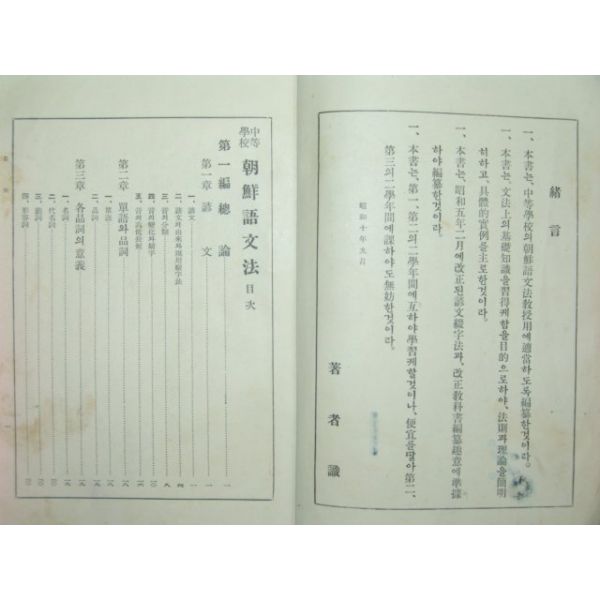 緖言
一、本書는、中等學校의朝鮮語文法敎授用에適當하도록編纂한것이라。
一、本書는、文法上의基礎知識을習得케함을目的으로하야、法則과理論을簡明
히하고、具體的實例를主로한것이라。
一、本書는、昭和五年二月에改正된諺文綴字法과、改正敎科書編纂趣意에準據
하야編纂한것이라。
一、本書는、第一、第二의二學年間에亙하야學習케할것이나、便宜을딸아第二、
第三의二學年間에課하야도無妨한것이라。
昭和十年九月
著者識
中等學校 朝鮮語文法 目次
第一編 總論
第一章 諺文
一、諺文
二、諺文의由來와
三、音의分類
四、音의變化와
五、音의
第二章 單語와品詞
一、單語
二、品詞
第三章 各品詞의意義
一、名詞
二、代名詞
三、數詞
四、形容詞